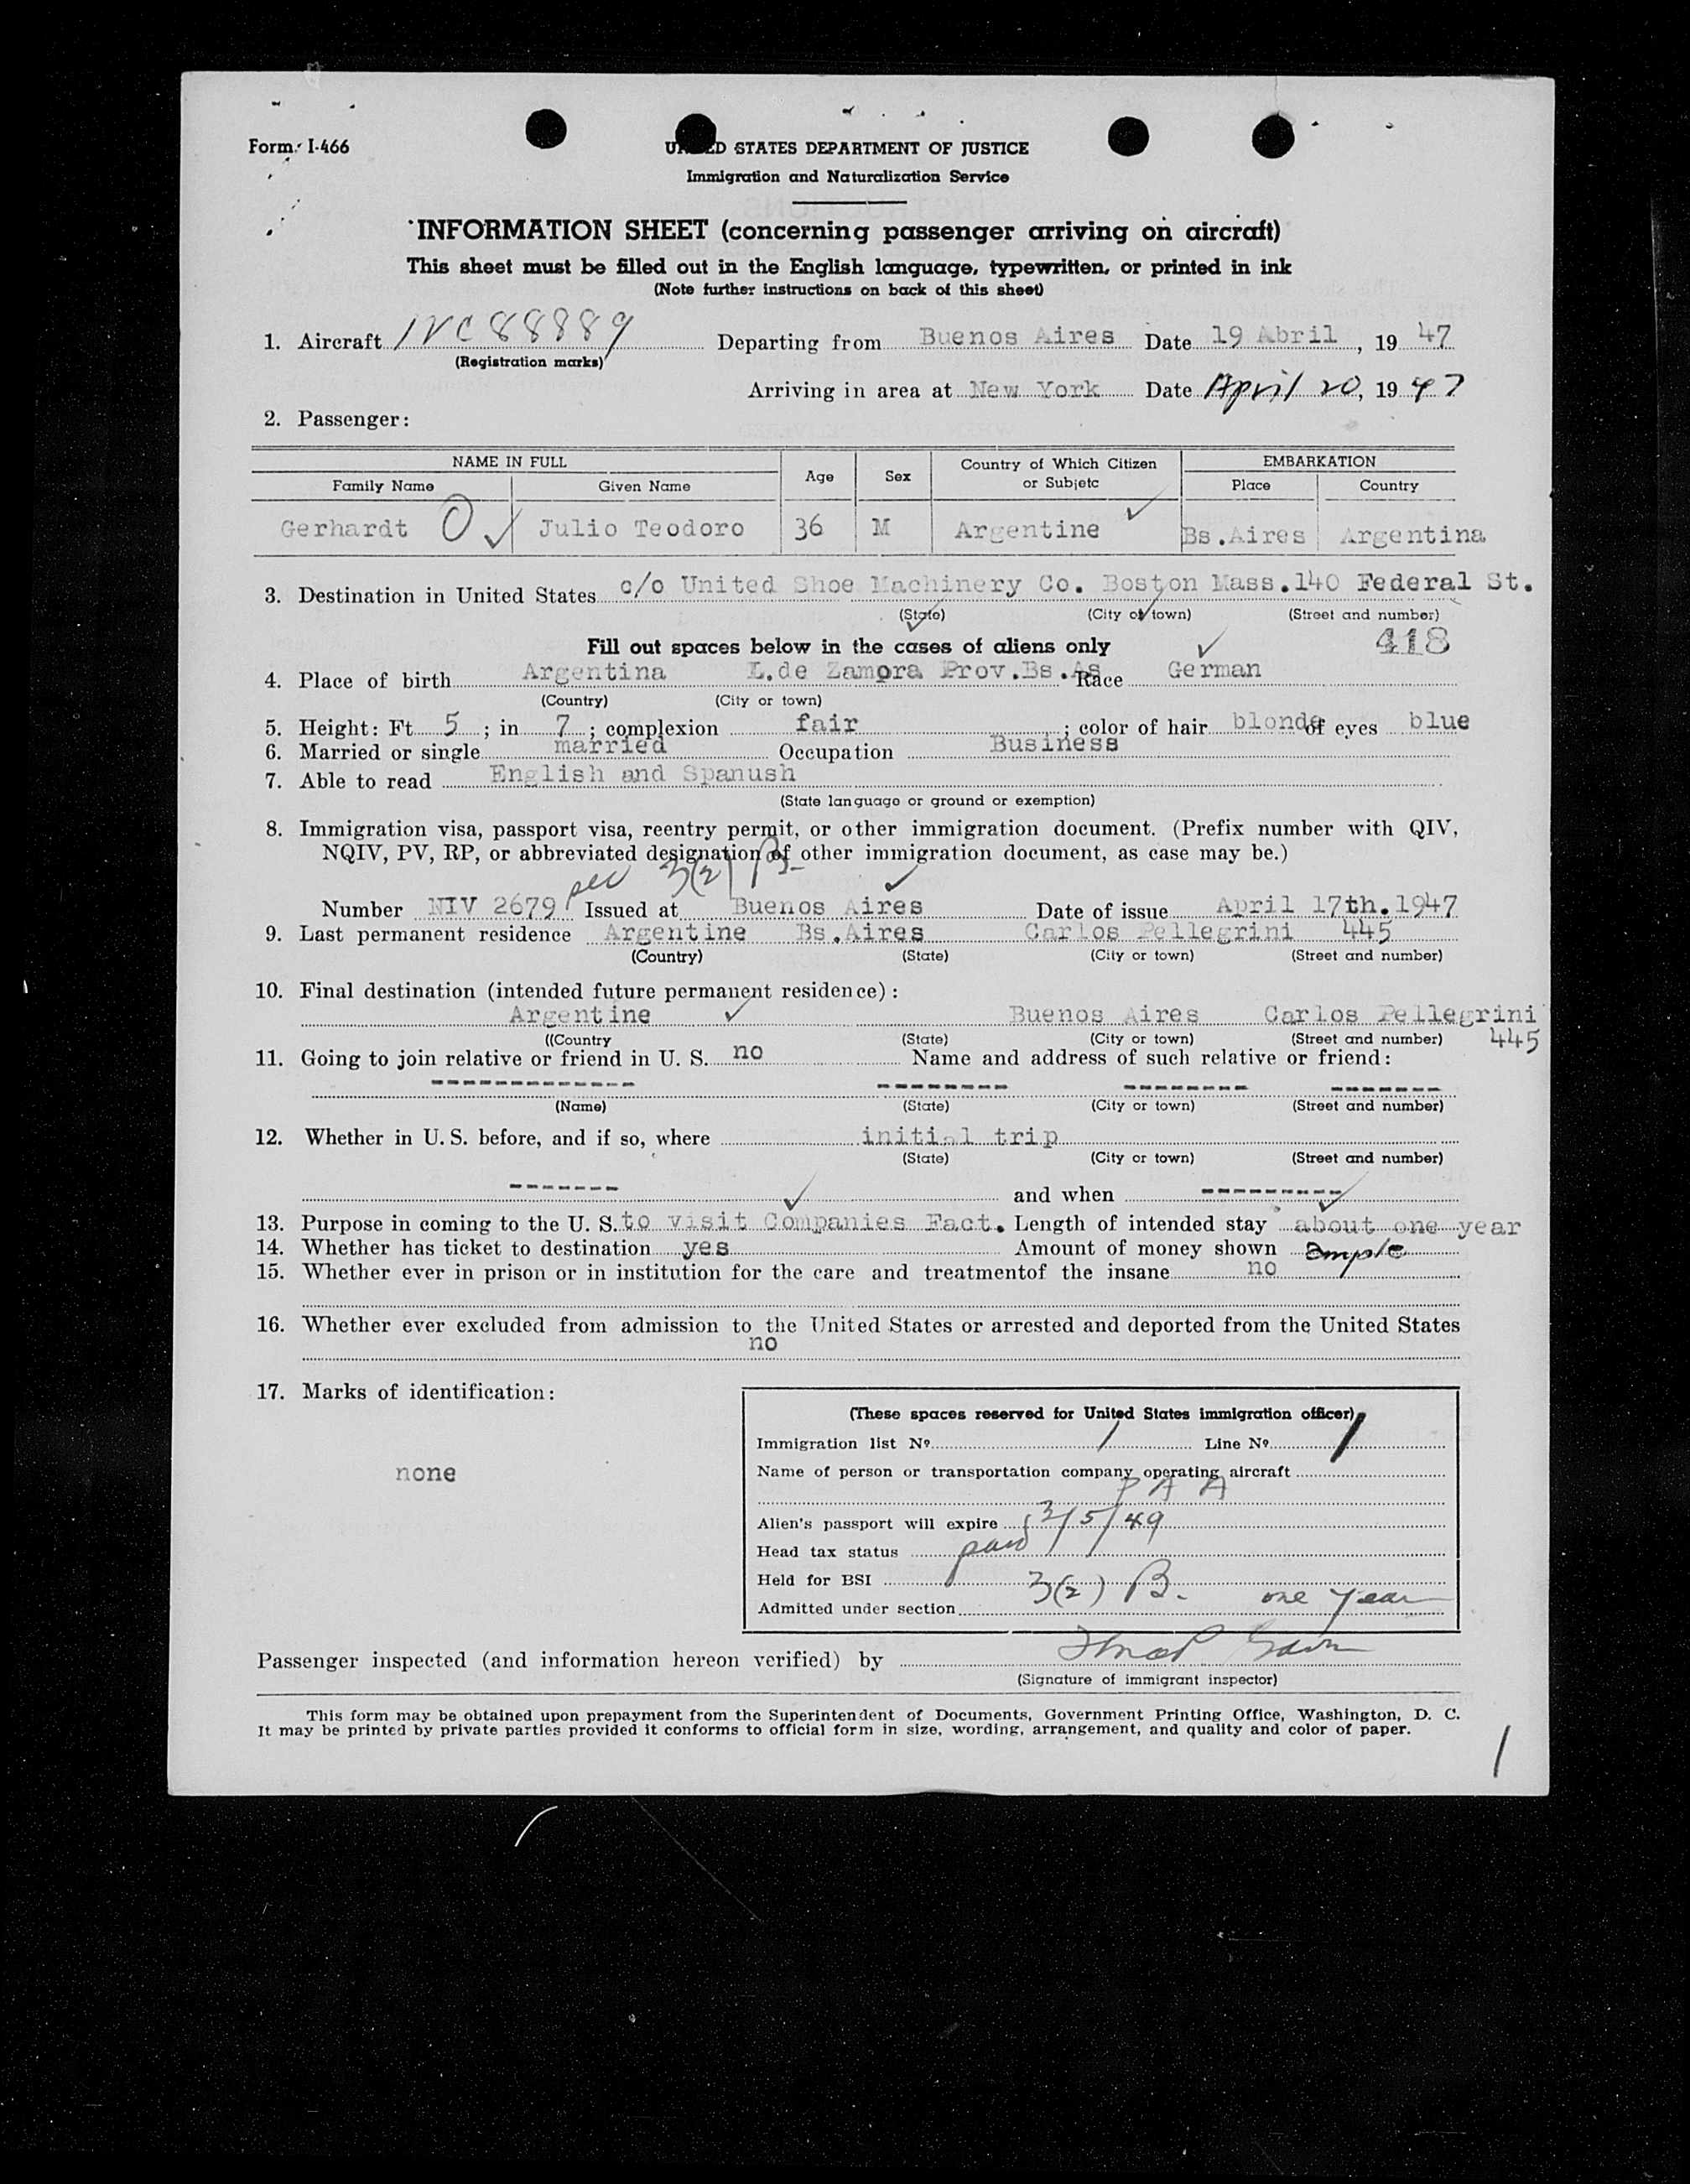 Form I-466
UNITED STATES DEPARTMENT OF JUSTICE
Immigration and Naturalization Service
INFORMATION SHEET (concerning passenger arriving on aircraft)
This sheet must be filled out in the English language, typewritten, or printed in ink
(Note further instructions on back of this sheet)
1. Aircraft 88889 Departing from Buenos Aires Date 19 Abril, 19 47
(Registration marks)
Arriving in area at New York Date April 20, 19 47
2. Passenger:
NAME IN FULL Age Sex Country of Which Citizen or Subjetc EMBARKATION
Family Name Given Name Place Country
Gerhardt O Julio Teodoro 36 M Argentine Bs.Aires Argentina
3. Destination in United States c/o United Shoe Machinery Co. Boston Mass. 140 Federal St.
(State) (City or town) (Street and number)
Fill out spaces below in the cases of aliens only 418
4. Place of birth Argentina L.de Zamora Prov.Bs.As Race German
(Country) (City or town)
5. Height: Ft. 5 ; in 7 ; complexion fair ; color of hair blonde of eyes blue
6. Married or single married Occupation Business
7. Able to read English and Spanush
(State language or ground or exemption)
8. Immigration visa, passport visa, reentry permit, or other immigration document. (Prefix number with QIV,
NQIV, PV, RP, or abbreviated designation of other immigration document, as case may be.)
sec 3(2) B.
Number NIV 2679 Issued at Buenos Aires Date of issue April 17th.1947
9. Last permanent residence Argentine Bs.Aires Carlos Pellegrini 445
(Country) (State) (City or town) (Street and number)
10. Final destination (intended future permanent residence):
Argentine Buenos Aires Carlos Pellegrini
((Country (State) (City or town) (Street and number) 445
11. Going to join relative or friend in U. S. no Name and address of such relative or friend:
------------- -------- -------- -------
(Name) (State) (City or town) (Street and number)
12. Whether in U. S. before, and if so, where initial trip
(State) (City or town) (Street and number)
------- and when ---------
13. Purpose in coming to the U. S. to visit Companies Fact. Length of intended stay about one year
14. Whether has ticket to destination yes Amount of money shown ample
15. Whether ever in prison or in institution for the care and treatmentof the insane no
16. Whether ever excluded from admission to the United States or arrested and deported from the United States
no
17. Marks of identification:
none
(These spaces reserved for United States immigration officer)
Immigration list Nº 1 Line Nº 1
Name of person or transportation company operating aircraft
P A A
Alien's passport will expire 3/5/49
Head tax status paid
Held for BSI
Admitted under section 3(2) B. one year
Passenger inspected (and information hereon verified) by
(Signature of immigrant inspector)
This form may be obtained upon prepayment from the Superintendent of Documents, Government Printing Office, Washington, D. C.
It may be printed by private parties provided it conforms to official form in size, wording, arrangement, and quality and color of paper.
1